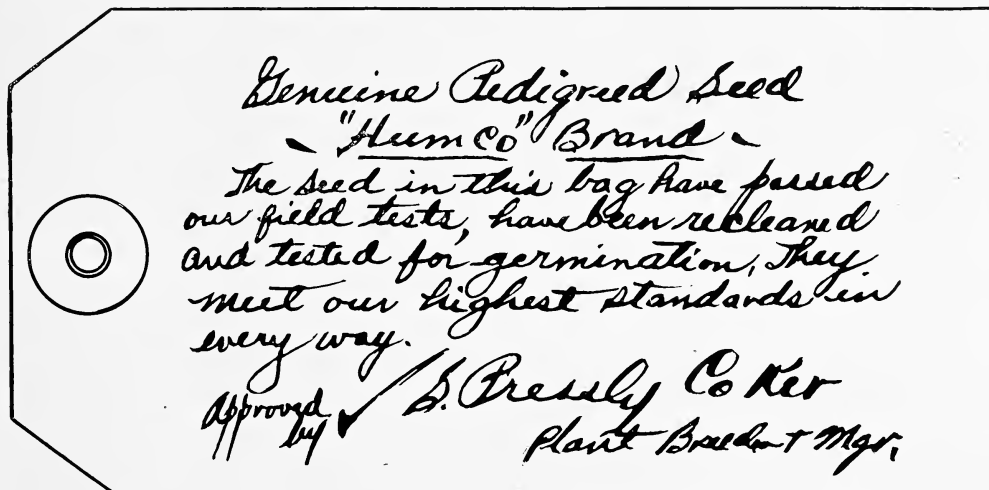 Genuine Pedigreed Seed
- "Humco" Brand -
The seed in this bag have passed
our field tests, have been recleaned
and tested for germination. They
meet our highest standards in
every way.
Approved by ✓ S. Pressly Coker
Plant Breeder & Mgr.